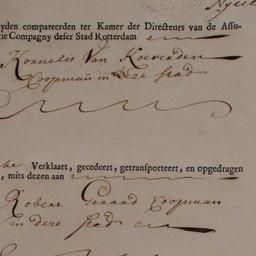 Nyul
yden compareerden ter Kamer der Directeurs van de Assu-
tie Compagny deser Stad Rotterdam
Kornelis Van Koeverden
Coopman in deze stad
Verklaart, gecedeert, getransporteert, en opgedragen
, mits dezen aan
Robert Gerard Coopman
in deze stad